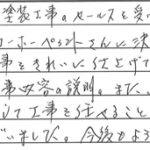 塗装工事のセールスを受
ユーホーペイントさんに決
事をきれいに仕上げて
事内容の説明。また、
して工事を任せること
いました。今後もよろ